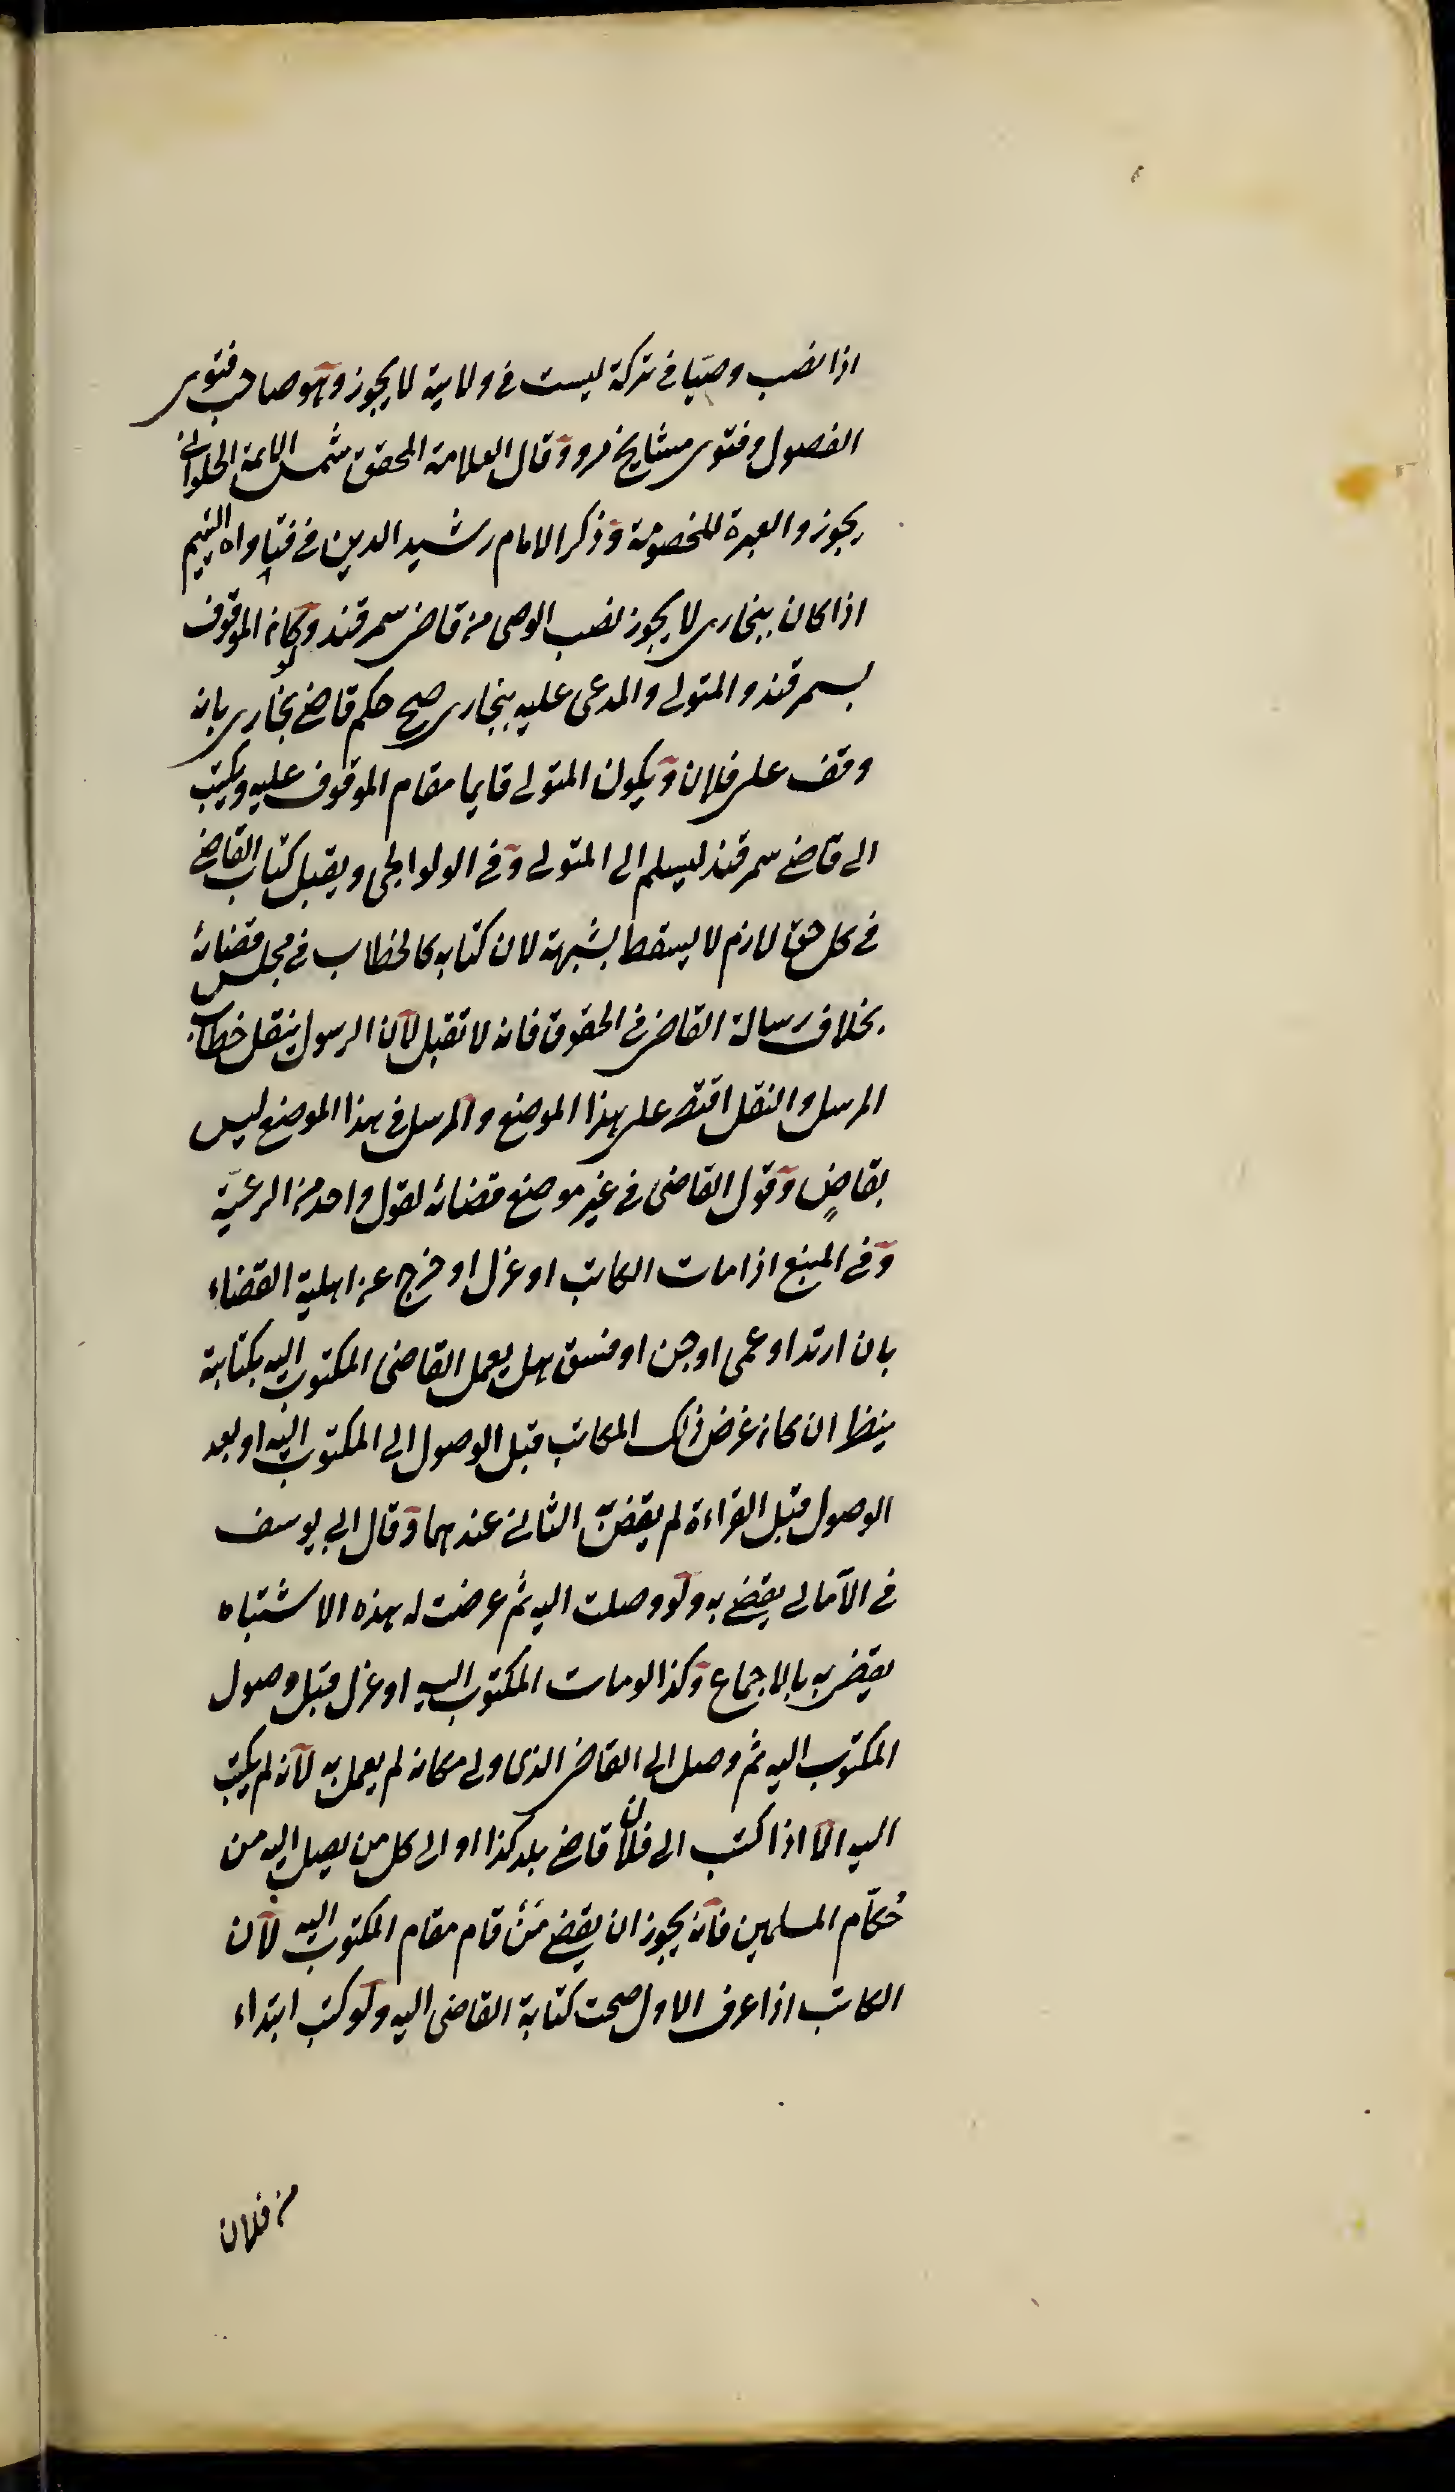 اذا نصب وصيا في تركة ليست في ولاية لا يجوز وهو صاحب فتوى
الفصول وفتوى مشايخ مرو وقال العلامة المحقق شمس الائمة الحلواني
يجوز والعبرة للخصومة وذكر الامام رشيد الدين في فتياواه اليتيم
اذا كان ببخارى لا يجوز نصب الوصى من قاضى سمرقند ولو كان الموقوف
بسمرقند والمتولى والمدعى عليه ببخارى صح حكم قاضي بخارى بانه
وقف على فلان ويكون المتولى قايما مقام الموقوف عليه ويكتب
الى قاضي سمرقند ليسلم الى المتولى وفي الولوالجى ويقبل كتاب القاضي
في كل حق لازم لا يسقط بشبهة لان كتابه كالخطاب في مجلس قضائه
بخلاف رسالة القاضى في الحقوق فانه لا تقبل لان الرسول ينقل خطاب
المرسل والنقل اقتصر على هذا الموضع والمرسل في هذا الموضع ليس
بقاضٍ وقول القاضى في غير موضع قضائه كقول واحد من الرعيّة
وفي المنبع اذا مات الكاتب او عزل او خرج عن اهلية القضاء
بان ارتد او عمى او جن او فسق هل يعمل القاضى المكتوب اليه بكتابة
ينظر ان كان عرض ذلك الكاتب قبل الوصول الى المكتوب اليه او بعد
الوصول قبل القراءة لم يقض به الثانى عندهما وقال ابى يوسف
في الآمالى يقضي به ولو وصلت اليه ثم عرضت له هذه الاشتباه
يقضى به بالاجماع وكذا لو مات المكتوب اليه او عزل قبل وصول
المكتوب اليه ثم وصل الى القاضى الذى ولى مكانه لم يعمل به لانه لم يكتب
اليه الا اذا كتب الى فلان قاضي بلد كذا او الى كل من يصل اليه من
حُكّام المسلمين فانه يجوز ان يقضي مَنْ قام مقام المكتوب اليه لان
الكاتب اذا عرف الاول صحت كتابة القاضى اليه ولو كتب ابتداء
من فلان